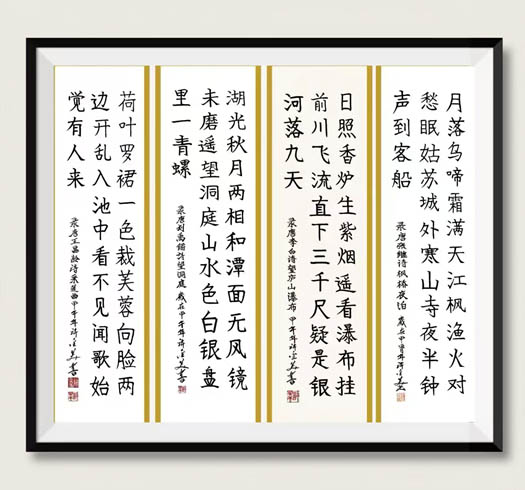 月落乌啼霜满天江枫渔火对
愁眠姑苏城外寒山寺夜半钟
声到客船
录唐张继诗枫桥夜泊
日照香炉生紫烟遥看瀑布挂
前川飞流直下三千尺疑是银
河落九天
录唐李白诗望庐山瀑布甲午年
湖光秋月两相和潭面无风镜
未磨遥望洞庭山水色白银盘
里一青螺
录唐刘禹锡诗望洞庭岁在甲午年
荷叶罗裙一色裁芙蓉向脸两
边开乱入池中看不见闻歌始
觉有人来
录唐王昌龄诗采莲曲甲午年